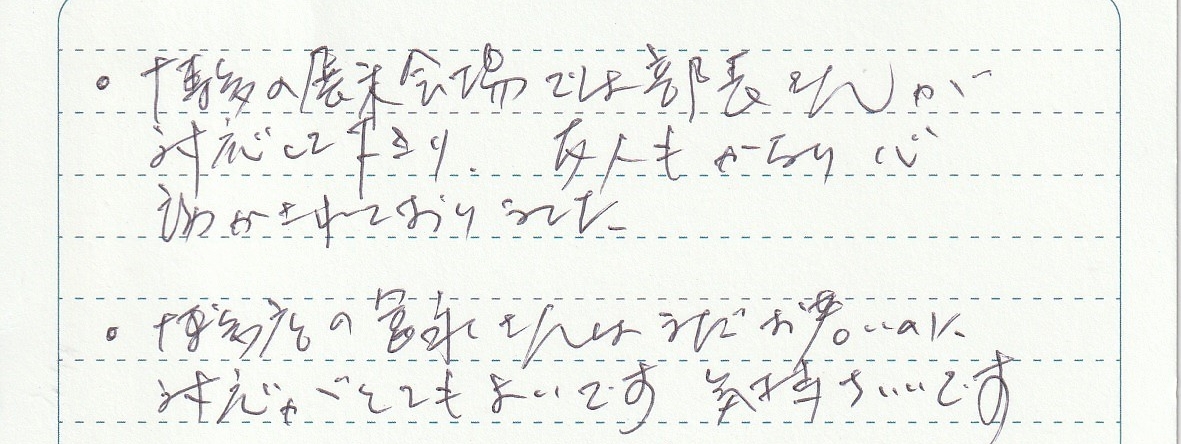 ・博多の展示会場では部長さんが
対応して下さり、友人もかなり心
動かされておりました
・博多店の富永さんはまだお若いのに
対応がとてもよいです 気持ちいいです